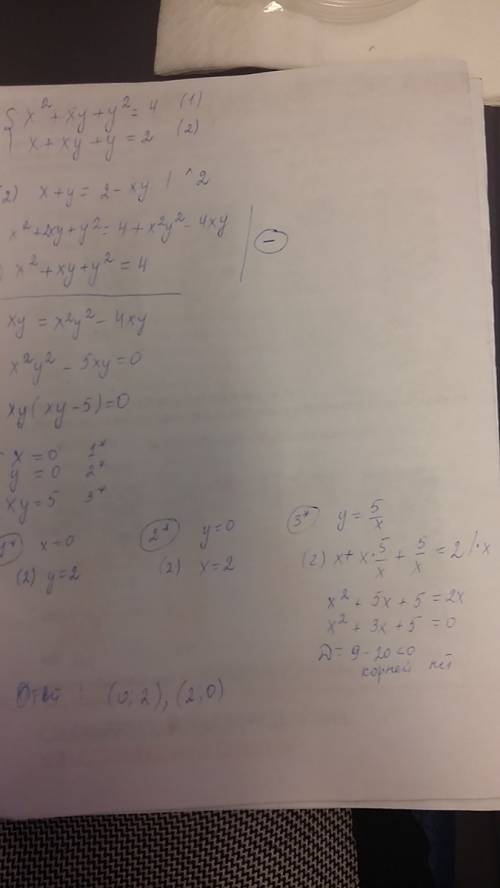 x² + xy + y² = 4 (1)
x + xy + y = 2 (2)
(2) x + y = 2 - xy | ^2
x² + 2xy + y² = 4 + x²y² - 4xy
x² + xy + y² = 4
-
xy = x²y² - 4xy
x²y² - 5xy = 0
xy(xy - 5) = 0
x = 0 1*
y = 0 2*
xy = 5 3*
1* x = 0
(2) y = 2
2* y = 0
(2) x = 2
3* y = 5/x
(2) x + x · 5/x + 5/x = 2 | · x
x² + 5x + 5 = 2x
x² + 3x + 5 = 0
D = 9 - 20 < 0
корней нет
Ответ (0, 2), (2, 0)